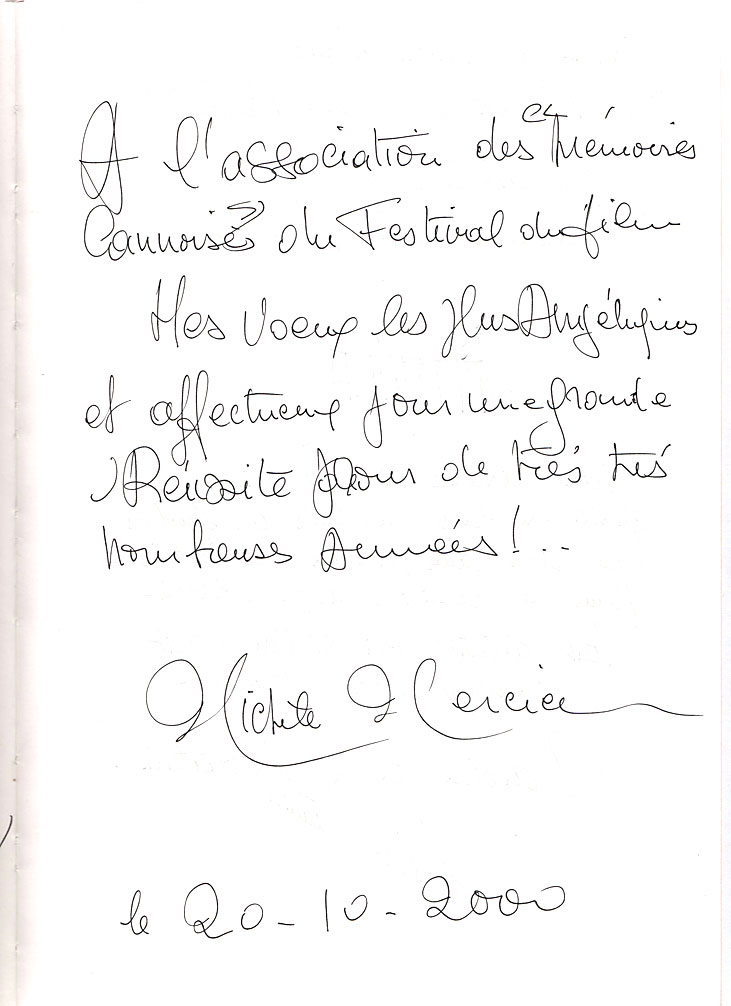 A l'association des et Mémoires
Cannoises du Festival du film
Mes voeux les plus Angéliques
et affectueux pour une grande
Réussite pour de très très
nombreuses Années !..
Michèle Mercier
le 20-10-2000